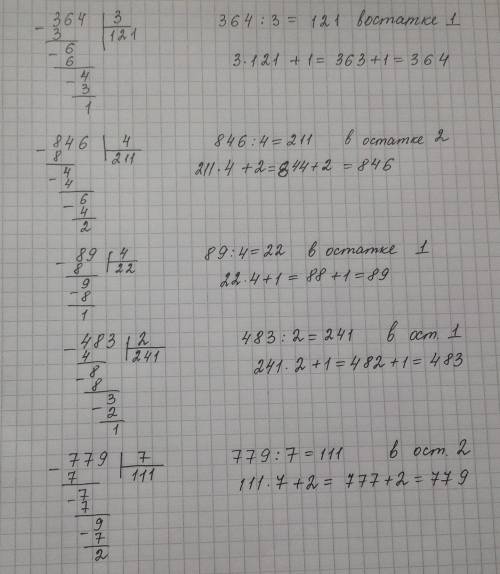 364 | 3        364 : 3 = 121 востатке 1
- 3 | 121
- 6        3·121 + 1 = 363+1 = 364
6
- 4
3
1
846 | 4        846 : 4 = 211 в остатке 2
- 8 | 211        211·4 + 2 = 844+2 = 846
- 4
4
- 6
4
2
89 | 4        89 : 4 = 22 в остатке 1
- 8 | 22        22·4+1 = 88+1 = 89
9
- 8
1
483 | 2        483 : 2 = 241 в ост. 1
- 4 | 241        241·2 +1 = 482+1 = 483
- 8
8
- 3
2
1
779 | 7        779 : 7 = 111 в ост. 2
- 7 | 111        111·7 +2 = 777+2 = 779
- 7
7
- 9
7
2